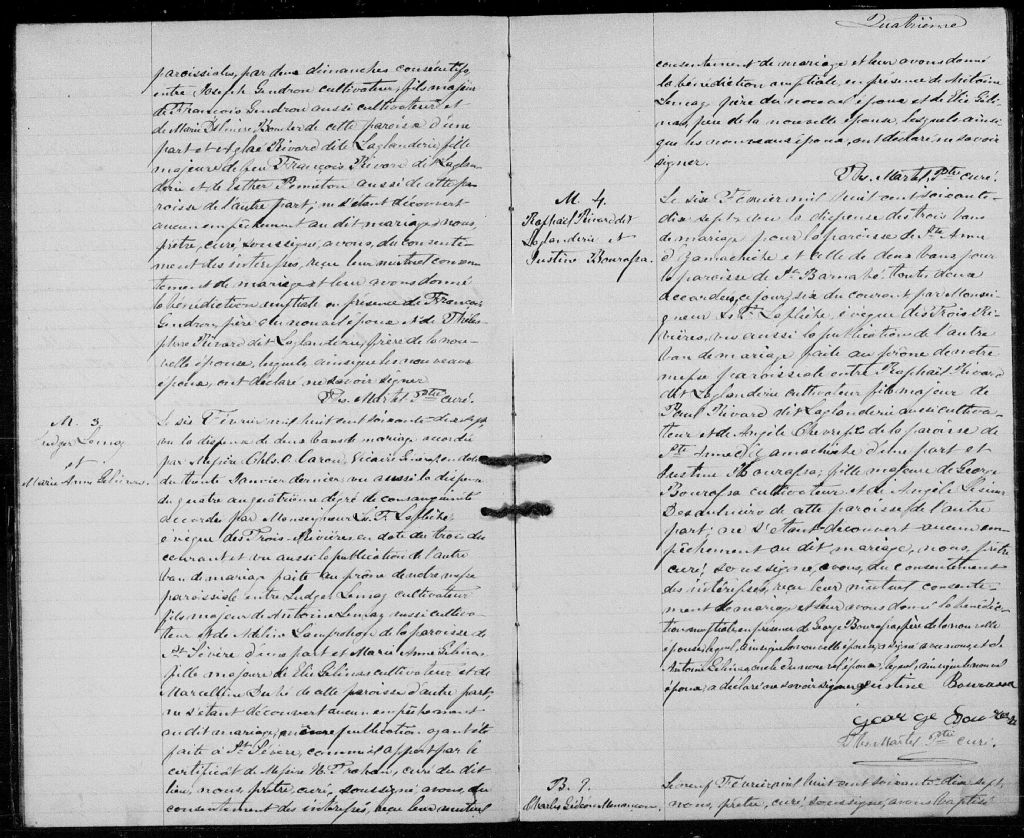 paroissiales, par deux dimanches consécutifs,
entre Joseph Gendron cultivateur, fils majeur
de François Gendron aussi cultivateur et
de Marie Boucher de cette paroisse d'une
part et Aglaé Rivard dite Laglanderie fille
majeure de feu François Rivard dit Laglan-
derie et de Esther aussi de cette pa-
roisse de l'autre part; ne s'étant découvert
aucun empêchement au dit mariage, nous,
prêtre, curé, soussigné, avons, du consente-
ment des intéressés, reçu leur mutuel consen-
tement de mariage et leur avons donné
la bénédiction nuptiale en présence de François
Gendron, père du nouvel époux et de Théles-
phore Rivard dit Laglanderie, frère de la nou-
velle épouse, lesquels ainsi que les nouveaux
époux, ont déclaré ne savoir signer.
Ths. Martel Ptre curé.
M. 3.
Ludger Lemay
et
Marie Anne Gélinas.
Le six Février mil huit cent soixante-dix-sept,
vu la dispense de deux bans de mariage accordée
par Messire Chls. O. Caron, Vicaire Général, en date
du trente Janvier dernier, vu aussi la dispense
du quatre au quatrième degré de consanguinité
accordée par Monseigneur Ls. F. Laflèche,
évêque des Trois-Rivières en date du trois du
courant, et vu aussi la publication de l'autre
ban de mariage faite au prône de notre messe
paroissiale entre Ludger Lemay cultivateur
fils majeur de Antoine Lemay aussi cultiva-
teur et de Adeline Lamprohon de la paroisse de
St. Sévère d'une part et Marie Anne Gélinas
fille majeure de Elie Gélinas cultivateur et de
Marcelline de cette paroisse d'autre part;
ne s'étant découvert aucun empêchement
au dit mariage, publication ayant été
faite à St. Sévère, comme il appert par le
certificat de Messire N. curé du dit
lieu, nous, prêtre, curé, soussigné, avons, du
consentement des intéressés, reçu leur mutuel
Quatrième
consentement de mariage et leur avons donné
la bénédiction nuptiale, en présence de Antoine
Lemay père du nouvel époux et de Elie Géli-
nas, père de la nouvelle épouse, lesquels ainsi
que les nouveaux époux, ont déclaré ne savoir
signer.
Ths. Martel, Ptre curé.
M. 4.
Raphaël Rivard dit
Laglanderie et
Justine Bourassa.
Le six Février mil huit cent soixante-
dix-sept, vu la dispense des trois bans
de mariage pour la paroisse de Ste. Anne
d'Yamachiche et celle de deux bans pour
la paroisse de St. Barnabé, toutes deux
accordées, ce jour, six du courant par Monsei-
gneur Ls. F. Laflèche, évêque des Trois-Ri-
vières, vu aussi la publication de l'autre
ban de mariage faite au prône de notre
messe paroissiale entre Raphaël Rivard
dit Laglanderie cultivateur fils majeur de
Paul Rivard dit Laglanderie aussi cultiva-
teur et de Angèle de la paroisse de
Ste. Anne d'Yamachiche d'une part et
Justine Bourassa, fille majeure de George
Bourassa cultivateur et de Angèle Lesieur
Desaulniers de cette paroisse de l'autre
part; ne s'étant découvert aucun em-
pêchement au dit mariage, nous, prêtre
curé, soussigné, avons, du consentement
des intéressés, reçu leur mutuel consente-
ment de mariage et leur avons donné la bénédic-
tion nuptiale en présence de George Bourassa, père de la nouvelle
épouse, lequel, ainsi que la nouvelle épouse, a signé avec nous, et de
Antoine Gélinas oncle du nouvel époux, lequel, ainsi que le nouvel
époux, a déclaré ne savoir signer. Justine Bourassa
george Bourassa
Ths. Martel Ptre curé.
B. 9.
Charles Gédéon
Le neuf Février mil huit cent soixante-dix-sept,
nous, prêtre, curé, soussigné, avons baptisé